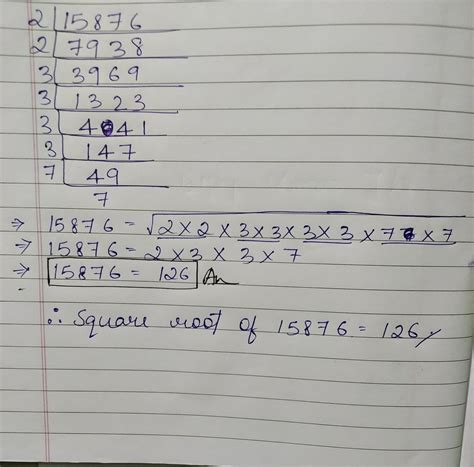 2 | 15876
2 | 7938
3 | 3969
3 | 1323
3 | 441
3 | 147
7 | 49
7
⇒ 15876 = √2×2×3×3×3×3×7×7
⇒ 15876 = 2×3×3×7
⇒ 15876 = 126 An
∴ Square root of 15876 = 126